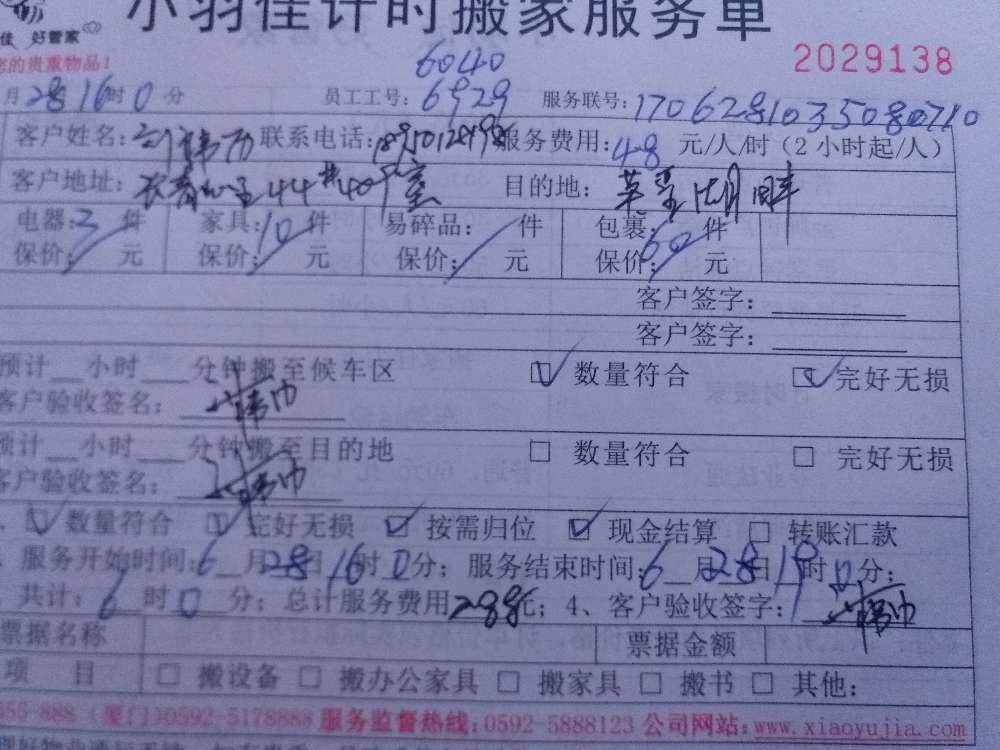 小羽佳计时搬家服务单
佳 好管家
您的贵重物品！
2029138
6040
月28 16时0分 员工工号：6929 服务联号：170628103508
客户姓名： 联系电话： 服务费用：48 元/人/时（2小时起/人）
客户地址：44#409室 目的地：
电器：3件 家具：10件 易碎品： 件 包裹：60件
保价： 元 保价： 元 保价： 元 保价： 元
客户签字：
客户签字：
预计 小时 分钟搬至候车区 数量符合 完好无损
客户验收签名：
预计 小时 分钟搬至目的地 数量符合 完好无损
客户验收签名：
数量符合 完好无损 按需归位 现金结算 转账汇款
服务开始时间：6月28日16时0分；服务结束时间：6月28日19时0分；
共计：6时0分；总计服务费用288元；4、客户验收签字：
票据名称 票据金额
项 目 搬设备 搬办公家具 搬家具 搬书 其他：
-888（厦门）0592-5178888 服务监督热线：0592-5888123 公司网站：www.xiaoyujia.com